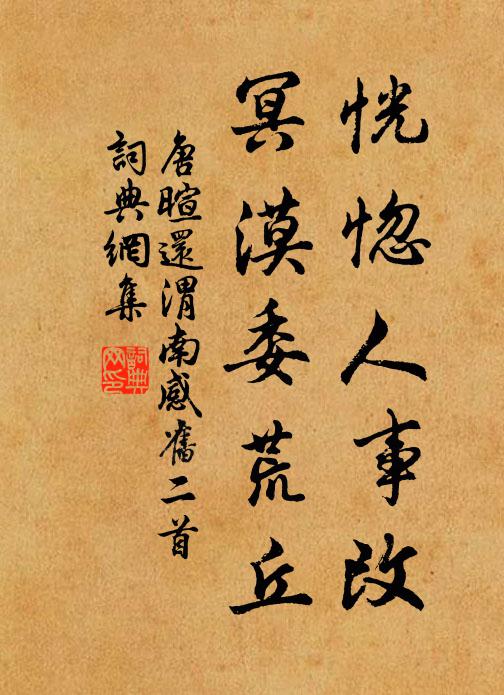 恍惚人事改
冥漠委荒丘
唐暄還渭南感舊二首
詞典網集
詞典
网印